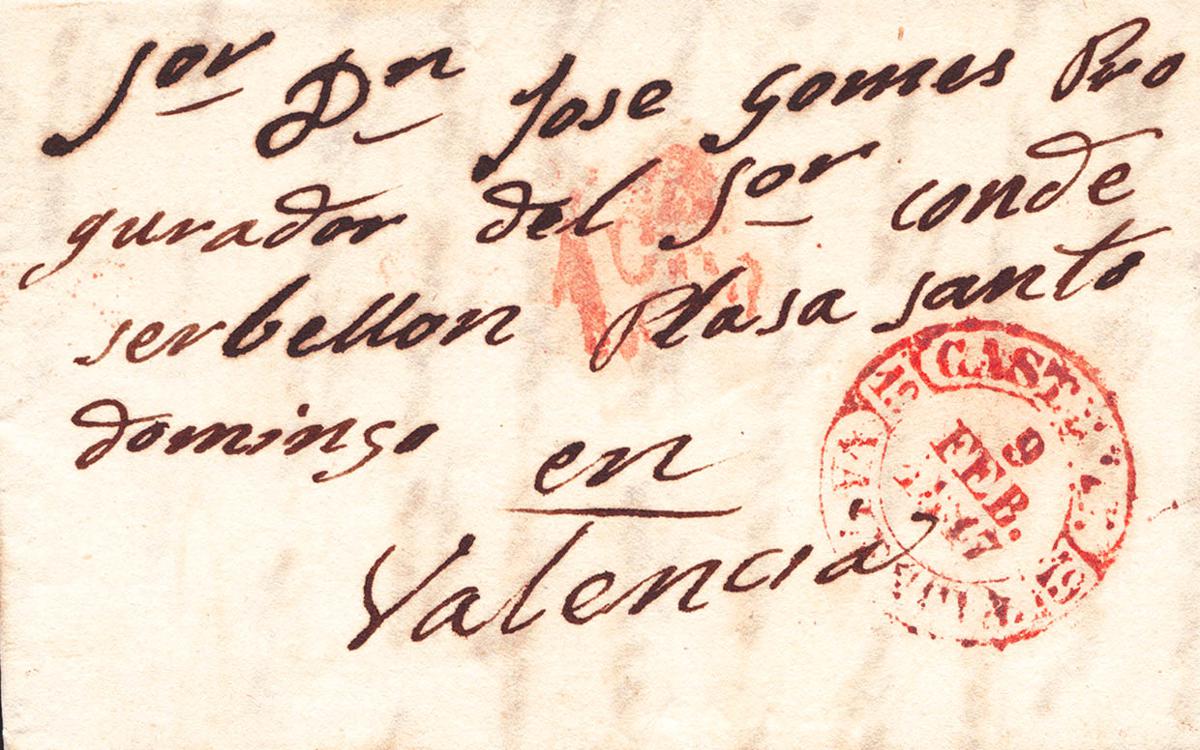 Sor Dn Jose gomes Pro
gurador del Sor conde
serbellon Plasa santo
domingo en
Valencia
9
FEB.